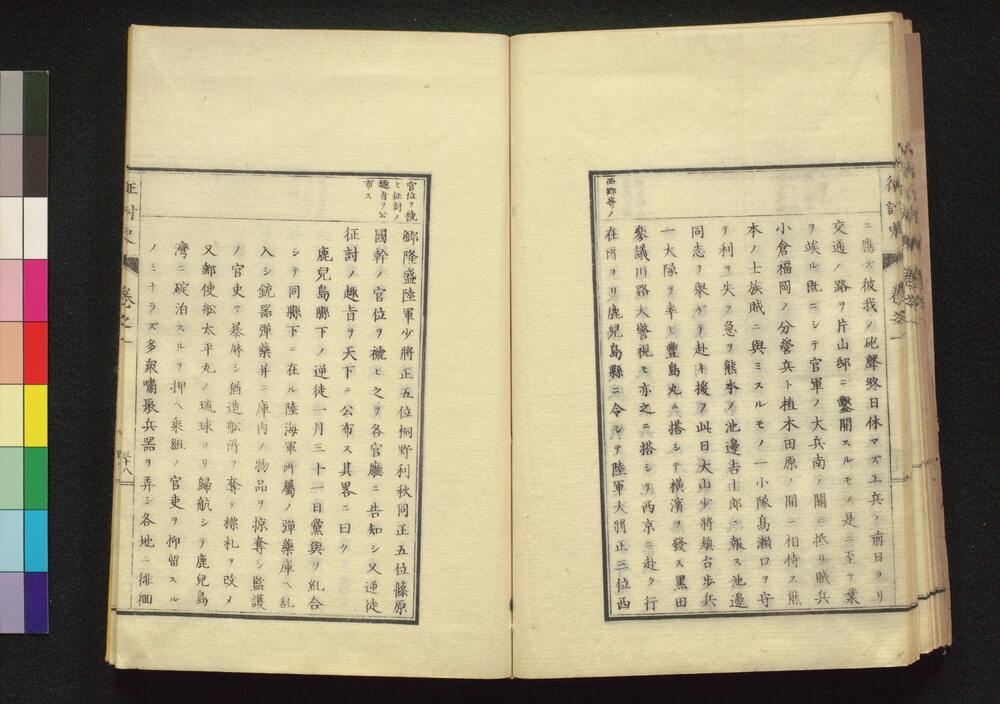 ニ應ズ彼我ノ砲聲終日休マズ工兵ノ前日ヨリ
交通ノ路ヲ片山邸ニ鑿開スルモノ是ニ至テ業
ヲ竣ル既ニシテ官軍ノ大兵南ノ關ニ抵リ賊兵
小倉福岡ノ分營兵ト植木田原ノ間ニ相持ス熊
本ノ士族賊ニ與ミスルモノ一小隊高瀬口ヲ守
テ利ヲ失フ急ヲ熊本ノ池邊吉十郎ニ報ス池邊
同志ヲ舉ゲテ赴キ援フ此日大山少將鎮台歩兵
一大隊ヲ率ヒ豐島丸ニ搭シテ横濱ヲ發ス黒田
參議川路大警視モ亦之ニ搭シテ西京ニ赴ク行
西郷等ノ
在所ヨリ鹿兒島縣ニ令シテ陸軍大將正三位西
官位ヲ褫
ヒ征討ノ
趣旨ヲ公
布ス
郷隆盛陸軍少將正五位桐野利秋同正五位篠原
國幹ノ官位ヲ褫ヒ之ヲ各官廳ニ告知シ又逆徒
征討ノ趣旨ヲ天下ニ公布ス其畧ニ曰ク
鹿兒島縣下ノ逆徒一月三十一日黨與ヲ糺合
シテ同縣下ニ在ル陸海軍所屬ノ彈藥庫ヘ乱
入シ銃器彈藥并ニ庫内ノ物品ヲ掠奪シ監護
ノ官吏ヲ暴辱シ猶造船所ヲ奪テ標札ヲ改メ
又郵便船太平丸ノ琉球ヨリ歸航シテ鹿兒島
灣ニ碇泊スルヲ押ヘ乘組ノ官吏ヲ抑留スル
ノミナラズ多衆嘯聚兵器ヲ弄シ各地ニ徘徊
征討史
卷之一
三十八